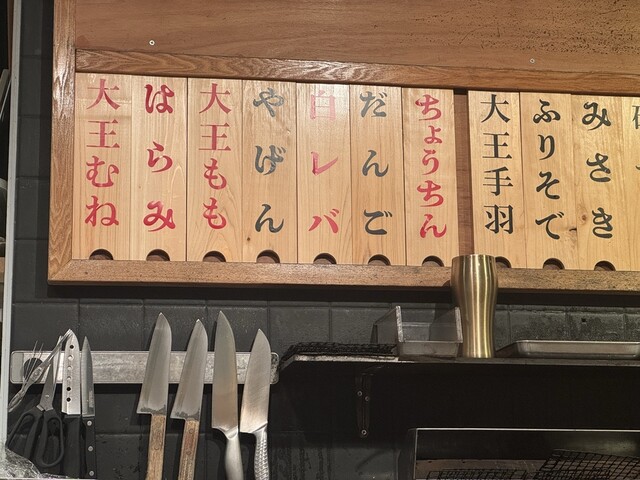 大王むね
はらみ
大王もも
やげん
白レバ
だんご
ちょうちん
大王手羽
ふりそで
みさき